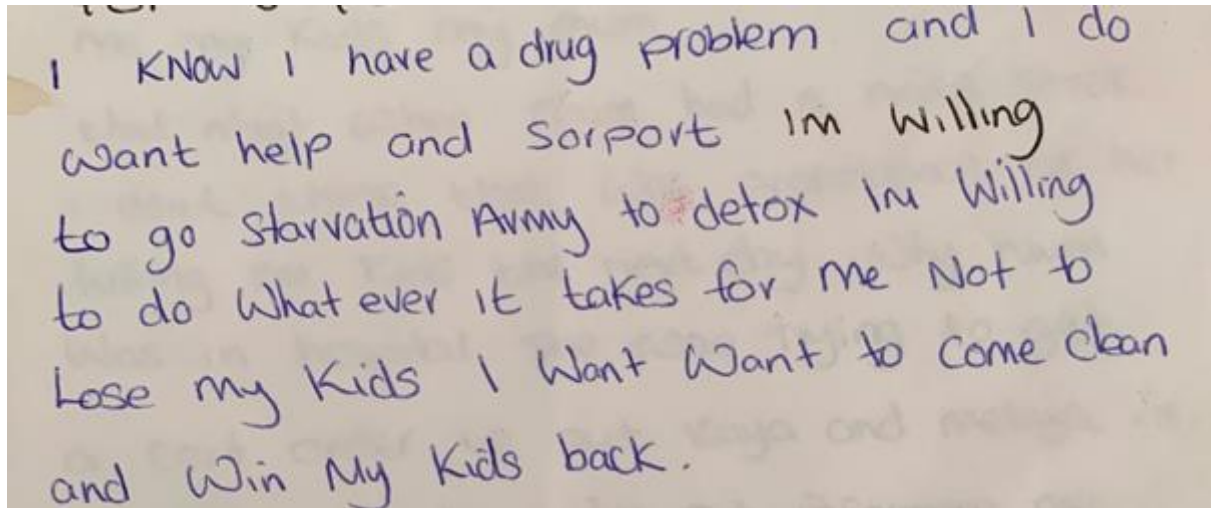 I KNOW I have a drug problem and I do
want help and Sorport IM Willing
to go Starvation Army to detox IM Willing
to do What ever it takes for me Not to
Lose my Kids I Want Want to Come Clean
and Win My Kids back.